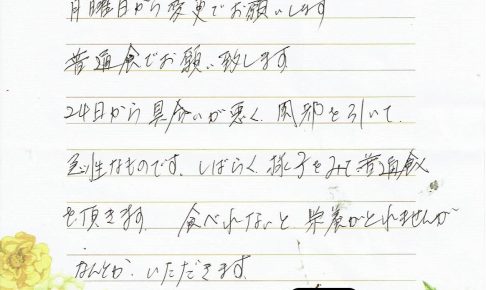 月曜日から変更でお願いします
普通食でお願い致します
24日から具合いが悪く、風邪を引いて、
急性なものです、しばらく、様子をみて、普通飯
を頂きます、食べれないと、栄養がとれませんが
なんとか、いただきます。